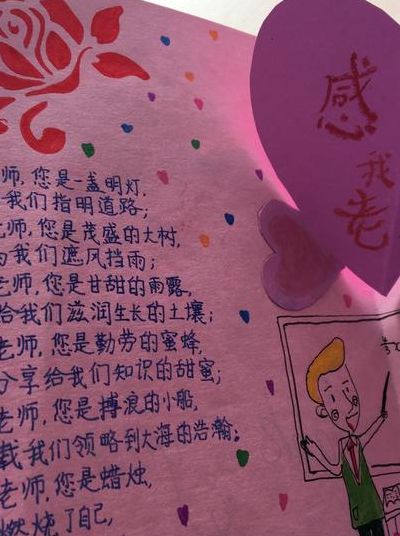 师,您是一盏明灯,
我们指明道路;
老师,您是茂盛的大树,
为我们遮风挡雨;
老师,您是甘甜的雨露,
给我们滋润生长的土壤;
老师,您是勤劳的蜜蜂,
分享给我们知识的甜蜜;
老师,您是搏浪的小船,
载我们领略到大海的浩瀚;
老师,您是蜡烛,
燃烧了自己,
感
我
老